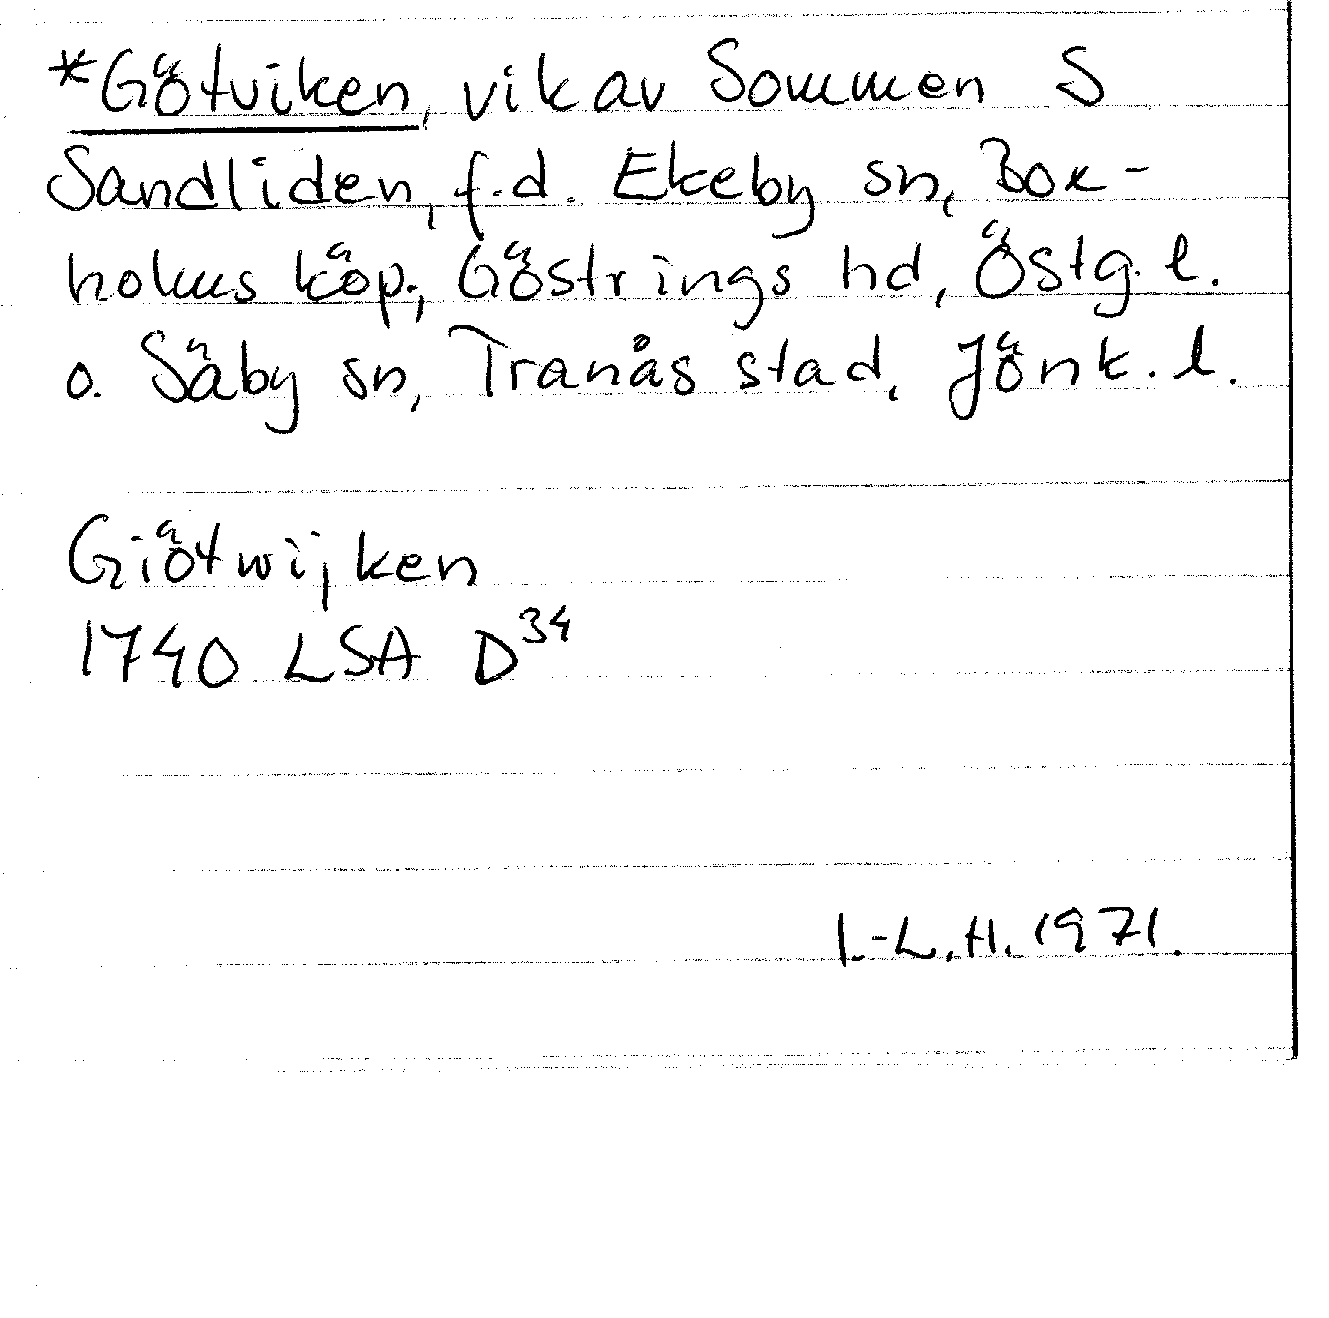 *Götviken, vik av Sommen S
Sandliden, f.d. Ekeby sn, Box-
holms köp., Göstrings hd, Östg. l.
o. Säby sn, Tranås stad, Jönk. l.
Giötwijken
1740 LSA D³⁴
I.-L.H. 1971.